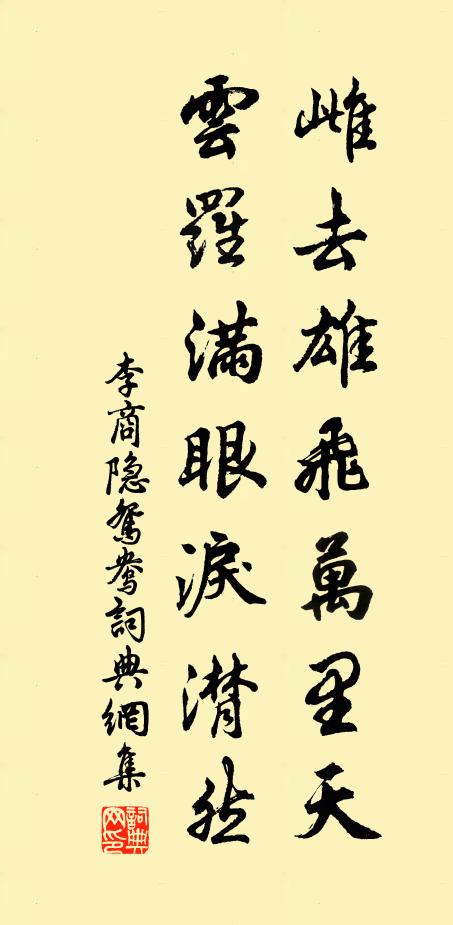 雌去雄飛萬里天
雲羅滿眼淚潸然
李商隐鴛鴦詞典網集
詞典網印